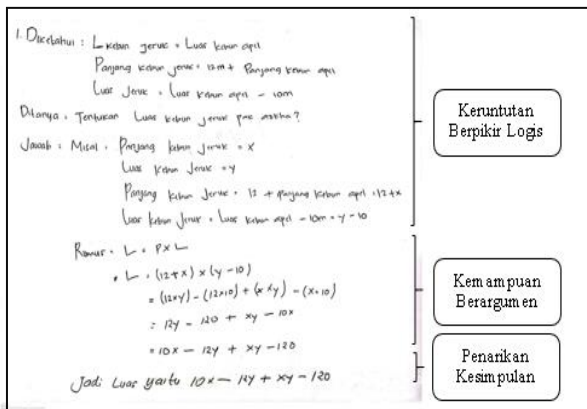 1. Diketahui : L kebun jeruk = Luas kebun apel
Panjang kebun jeruk = 12m + Panjang kebun apel
Luas Jeruk = Luas kebun apel - 10m
Ditanya : Tentukan Luas kebun jeruk pak
Jawab : Misal : Panjang kebun Jeruk = x
Luas kebun Jeruk = y
Panjang kebun Jeruk = 12 + panjang kebun apel = 12+x
Luas kebun Jeruk = Luas kebun apel - 10m = y - 10
Rumus = L = P x L
= L = (12+x) x (y-10)
= (12xy) - (12x10) + (x x y) - (x.10)
= 12y - 120 + xy - 10x
= 10x - 12y + xy - 120
Jadi Luas yaitu 10x - 12y + xy - 120
Keruntutan
Berpikir Logis
Kemampuan
Berargumen
Penarikan
Kesimpulan